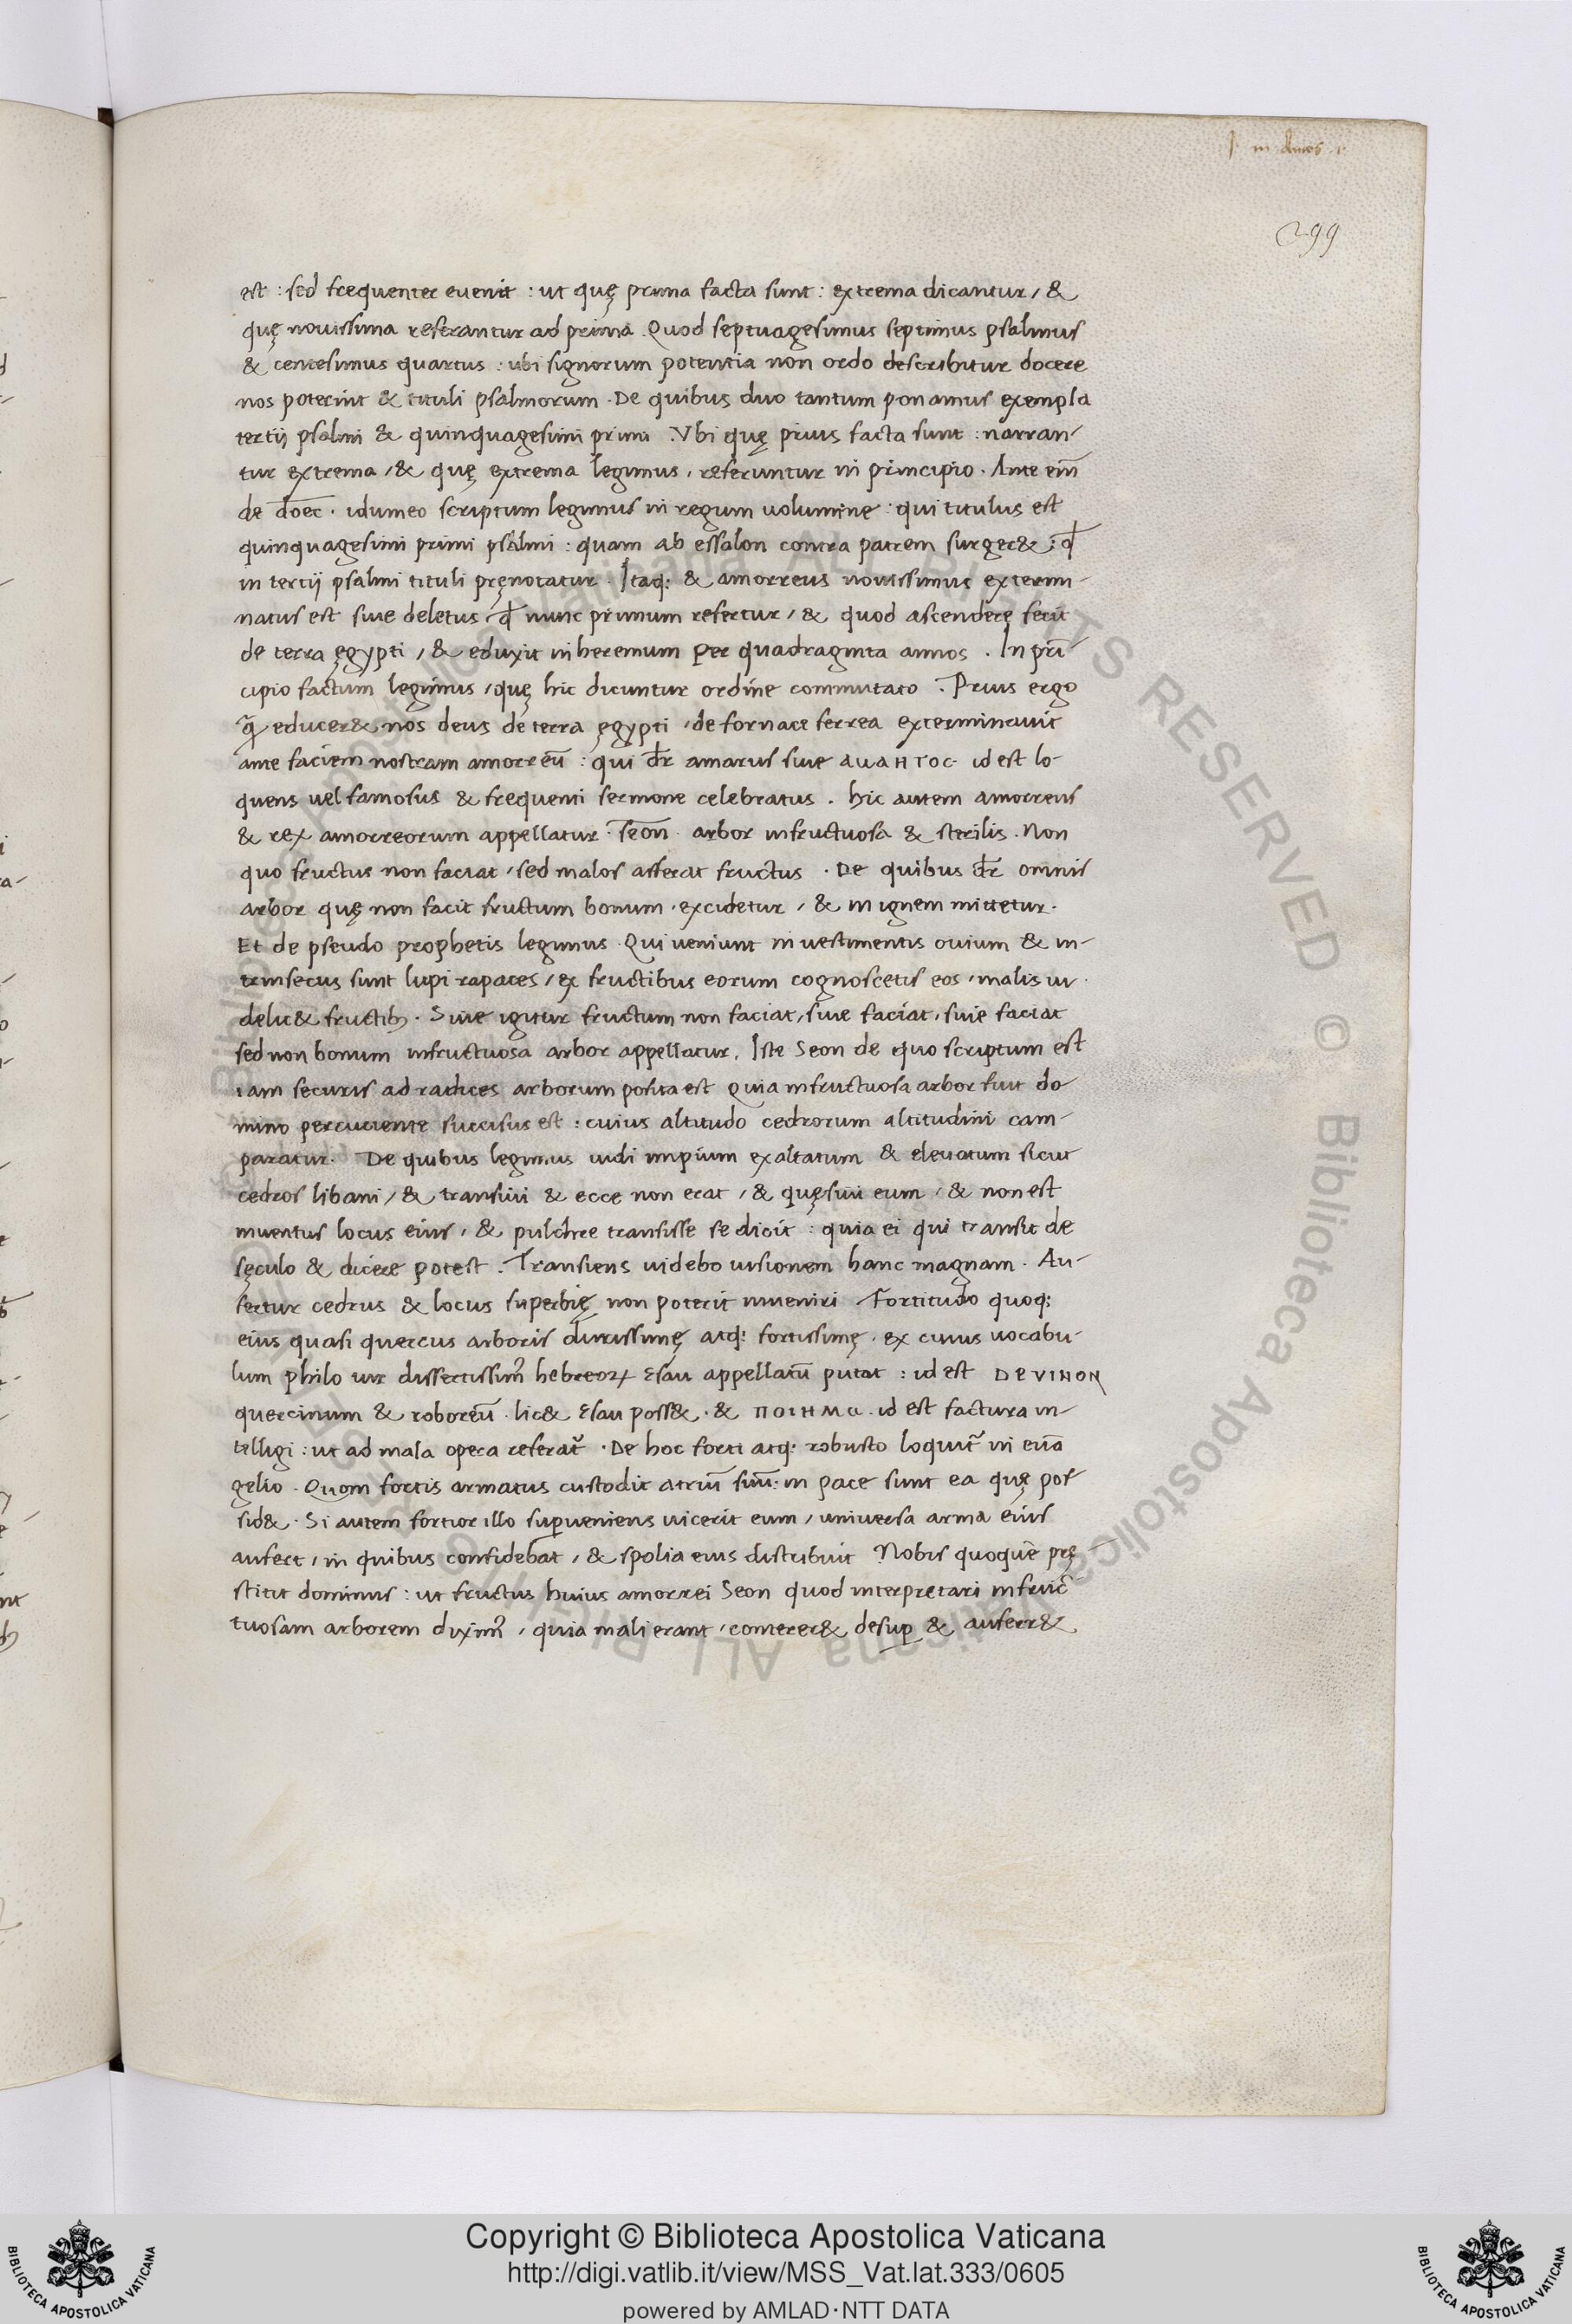 J. in Amos 1.
299
est : sed frequenter euenit : ut quę prima facta sunt : extrema dicantur, &
quę nouissima referantur ad prima . Quod septuagesimus septimus psalmus
& centesimus quartus : ubi signorum potentia non ordo describitur docere
nos poterint & tituli psalmorum . De quibus duo tantum ponamus exempla
tertij psalmi & quinquagesimi primi . Vbi quę prius facta sunt : narran-
tur extrema, & quę extrema legimus, referuntur in principio . Ante em̄
de doēc . idumeo scriptum legimus in regum uolumine : qui titulus est
quinquagesimi primi psalmi : quam ab essalon contra patrem surger& : qđ
in tertij psalmi tituli pręnotatur . Itaq; & amorreus nouissimus extermi-
natus est siue deletus, qđ nunc primum refertur, & quod ascendere fecit
de terra ęgypti, & eduxit in heremum per quadraginta annos . In prī-
cipio factum legimus, quę hic dicuntur ordine commutato . Prius ergo
q̄ educer& nos deus de terra ęgypti, de fornace ferrea exterminauit
ante faciem nostram amorreū : qui dr̄ amarus siue ΑUΑΗΤΟC id est lo-
quens uel famosus & frequenti sermone celebratus . hic autem amorreus
& rex amorreorum appellatur . Seōn . arbor infructuosa & sterilis . Non
quo fructus non faciat, sed malos afferat fructus . De quibus dr̄ omnis
arbor quę non facit fructum bonum . excidetur, & in ignem mittetur .
Et de pseudo prophetis legimus . Qui ueniunt in uestimentis ouium & in-
trinsecus sunt lupi rapaces, ex fructibus eorum cognoscetis eos, malis ui-
delic& fructib; . Siue igitur fructum non faciat, siue faciat, siue faciat
sed non bonum infructuosa arbor appellatur . Iste Seon de quo scriptum est
iam securis ad radices arborum posita est quia infructuosa arbor fuit do-
mino percutiente succisus est : cuius altitudo cedrorum altitudini cam-
paratur . De quibus legimus uidi impium exaltatum & eleuatum sicut
cedros libani, & transiui & ecce non erat, & quęsiui eum, & non est
inuentus locus eius, & pulchre transisse se dicit : quia ei qui transit de
sęculo & dicere potest . Transiens uidebo uisionem hanc magnam . Au-
fertur cedrus & locus superbię non poterit inueniri . Fortitudo quoq;
eius quasi quercus arboris durissimę atq; fortissimę . ex cuius uocabu-
lum philo uir dissertissim᾽ hebreoꝝ Esau appellatū putat : id est DEVINON
quercinum & roboreū . lic& Esau poss& . & ΠΟΙΗΜΑ . id est factura in-
telligi : ut ad mala opera referat᾽ . De hoc forti atq; robusto loquit᾽ in euā
gelio . Quom fortis armatus custodit atriū suū : in pace sunt ea quę pos
sid& . Si autem fortior illo superueniens uicerit eum, uniuersa arma eius
aufert, in quibus confidebat, & spolia eius distribuit Nobis quoque prę-
stitit dominus : ut fructus huius amorrei Seon quod interpretari infruc-
tuosam arborem diximᵒ, quia mali erant, conterer& desup̱ & auferr&
Copyright © Biblioteca Apostolica Vaticana
http://digi.vatlib.it/view/MSS_Vat.lat.333/0605
powered by AMLAD·NTT DATA
BIBLIOTECA APOSTOLICA VATICANA
BIBLIOTECA APOSTOLICA VATICANA